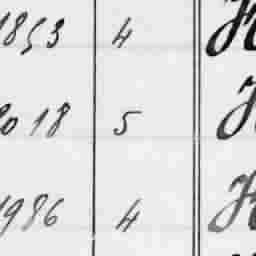 1853 4 H
2018 5 H
1986 4 H